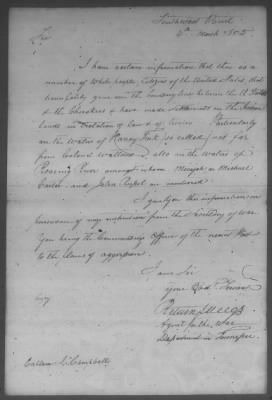 Southwest Point
4th March 1805
Sir
I have certain information that there are a
number of white people, Citizens of the United States, that
have gone over the boundary line between the U. States
& the Cherokees & have made settlements on the Indian
lands in violation of Laws & of treaties Particularly
on the waters of Stoney Fork so called, not far
from Colonel Waltons also on the waters of
Roaring River amongst whom Messrs. Michael
and John are mentioned.
I give you this information in
pursuance of my instructions from the Secretary of War
You being the Commanding Officer of the nearest Post
to the scene of aggression.
I am Sir
your Obdt. Servant
Return J Meigs
Agent for the War
Department in Tennessee
Copy
Captain J. Campbell